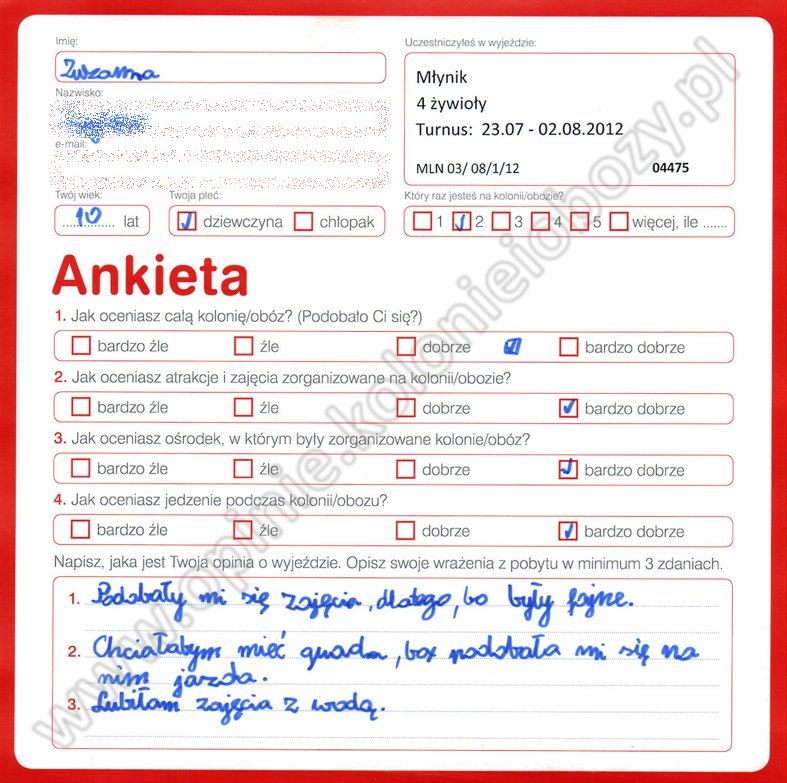 Imię:
Zuzanna
Nazwisko:
e-mail:
Twój wiek:
10 lat
Twoja płeć:
dziewczyna chłopak
Uczestniczyłeś w wyjeździe:
Młynik
4 żywioły
Turnus: 23.07 - 02.08.2012
MLN 03/ 08/1/12 04475
Który raz jesteś na kolonii/obozie?
1 2 3 4 5 więcej, ile .......
Ankieta
1. Jak oceniasz całą kolonię/obóz? (Podobało Ci się?)
bardzo źle źle dobrze bardzo dobrze
2. Jak oceniasz atrakcje i zajęcia zorganizowane na kolonii/obozie?
bardzo źle źle dobrze bardzo dobrze
3. Jak oceniasz ośrodek, w którym byly zorganizowane kolonie/obóz?
bardzo źle źle dobrze bardzo dobrze
4. Jak oceniasz jedzenie podczas kolonii/obozu?
bardzo źle źle dobrze bardzo dobrze
Napisz, jaka jest Twoja opinia o wyjeździe. Opisz swoje wrażenia z pobytu w minimum 3 zdaniach.
1. Podobały mi się zajęcia, dlatego, bo były fajne.
2. Chciałabym mieć quada, bo podobała mi się na
nim jazda.
3. Lubiłam zajęcia z wodą.
www.opinie.kolonieiobozy.pl